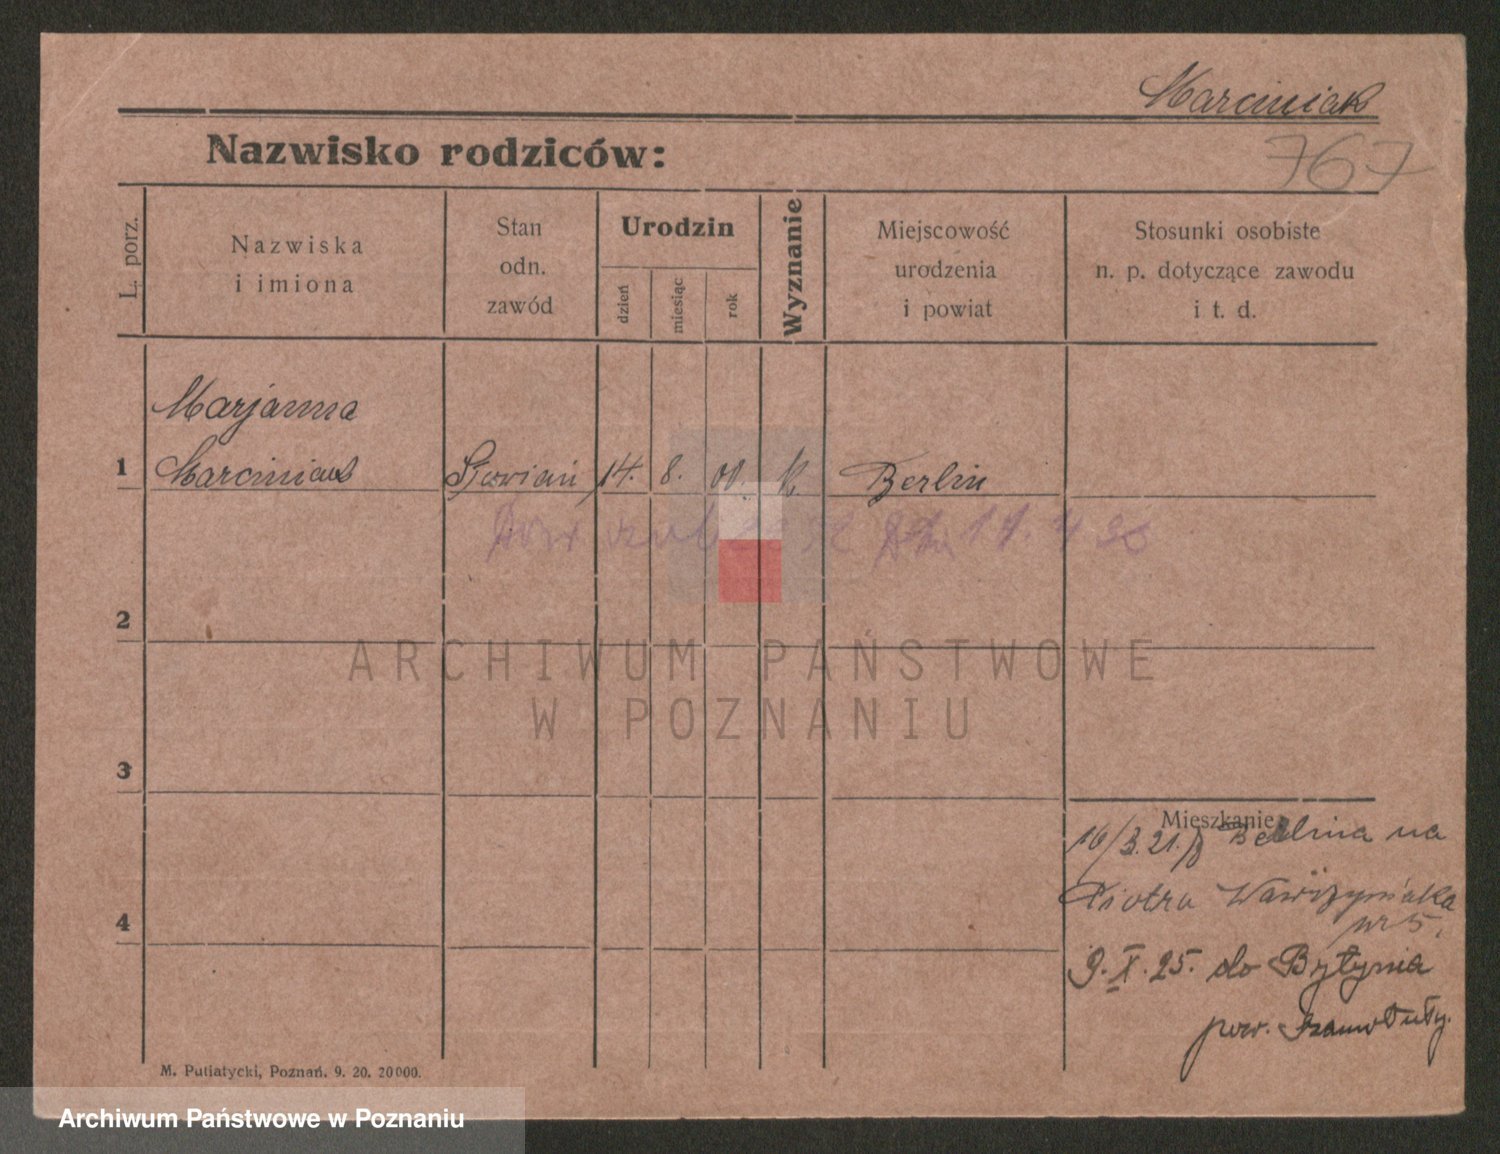 Marciniak
767
Nazwisko rodziców:
L. porz.
Nazwiska
i imiona
Stan
odn.
zawód
Urodzin
dzień
miesiąc
rok
Wyznanie
Miejscowość
urodzenia
i powiat
Stosunki osobiste
n. p. dotyczące zawodu
i t. d.
Marjanna
1 Marciniak 14. 8. 00. k. Berlin
2
ARCHIWUM PAŃSTWOWE
W POZNANIU
3
Mieszkanie
16/3.21. Berlina na
Piotra Wawrzyniaka
nr 5.
4
9. X. 25. do Bytynia
pow. Szamotuły.
M. Putiatycki, Poznań. 9. 20. 20000.
Archiwum Państwowe w Poznaniu